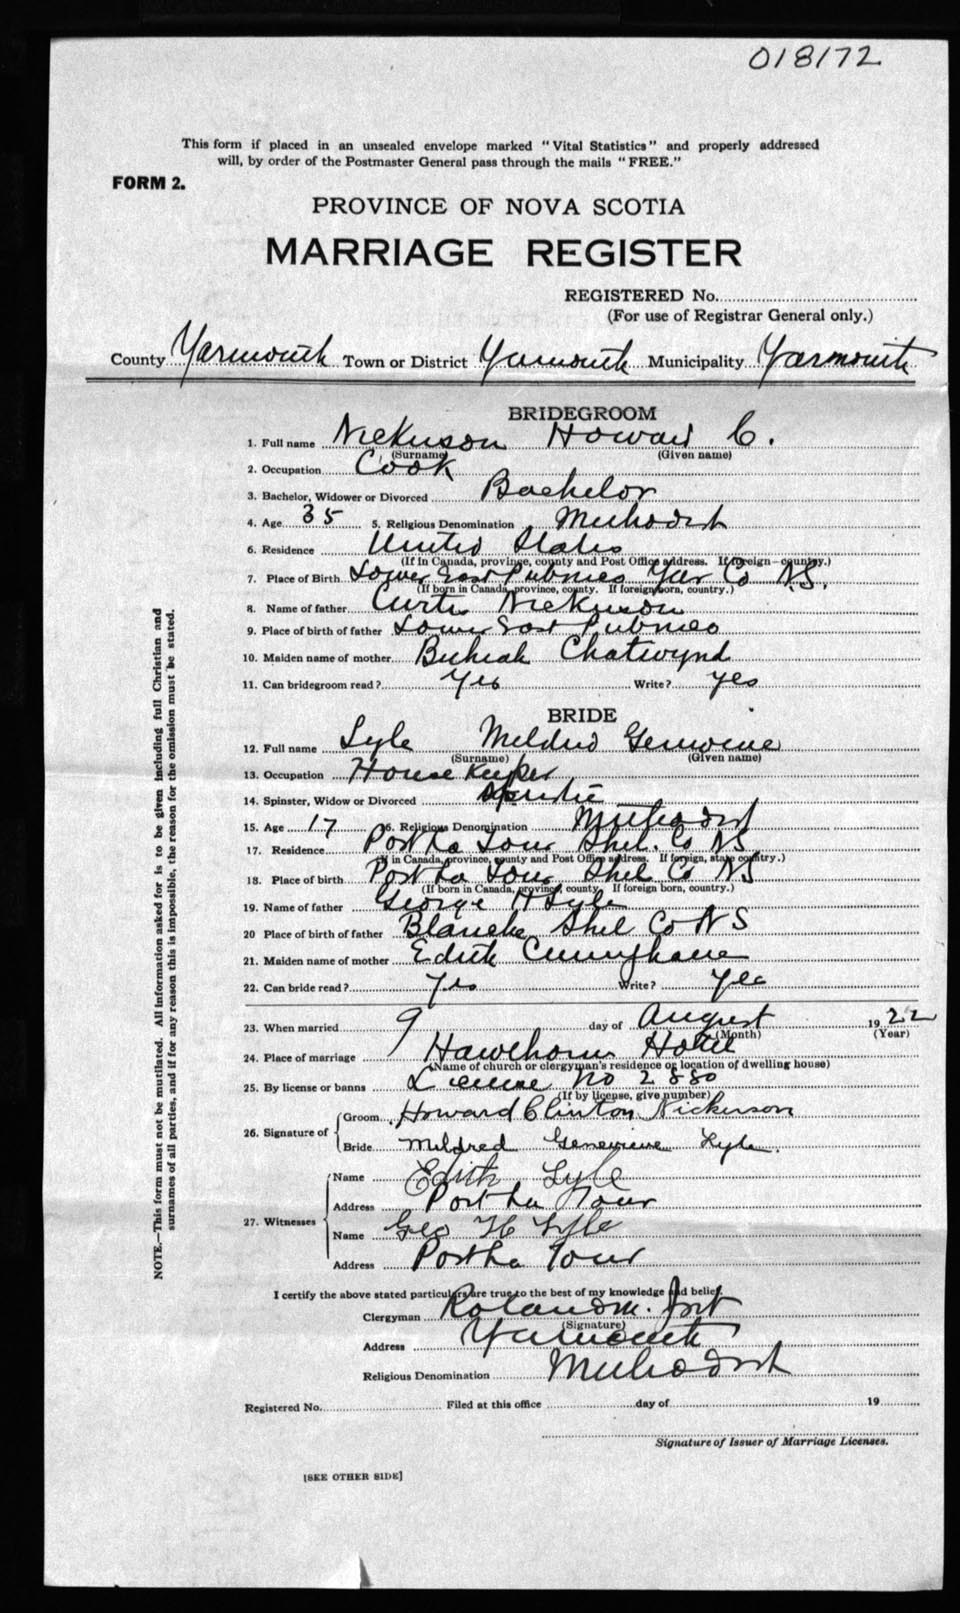 018172
This form if placed in an unsealed envelope marked "Vital Statistics" and properly addressed
will, by order of the Postmaster General pass through the mails "FREE."
FORM 2.
PROVINCE OF NOVA SCOTIA
MARRIAGE REGISTER
REGISTERED No.
(For use of Registrar General only.)
County Yarmouth Town or District Yarmouth Municipality Yarmouth
BRIDEGROOM
1. Full name Nickerson Howard C.
(Surname) (Given name)
2. Occupation Cook
3. Bachelor, Widower or Divorced Bachelor
4. Age 35 5. Religious Denomination Methodist
6. Residence United States
(If in Canada, province, county and Post Office address. If foreign—country.)
7. Place of Birth Lower East Pubnico Yar Co N.S.
(If born in Canada, province, county. If foreign born, country.)
8. Name of father Curtis Nickerson
9. Place of birth of father Lower East Pubnico
10. Maiden name of mother Chatwynd
11. Can bridegroom read? Yes Write? yes
BRIDE
12. Full name Lyle Mildred Genevieve
(Surname) (Given name)
13. Occupation House Keeper
14. Spinster, Widow or Divorced
15. Age 17 16. Religious Denomination Methodist
17. Residence Port La Tour Shel. Co NS
(If in Canada, province, county and Post Office address. If foreign, state country.)
18. Place of birth Port La Tour Shel Co NS
(If born in Canada, province, county. If foreign born, country.)
19. Name of father George H Lyle
20 Place of birth of father Blanche Shel Co N S
21. Maiden name of mother Edith
22. Can bride read? Yes Write? Yes
23. When married 9 day of August 1922
(Month) (Year)
24. Place of marriage Hawthorne Hotel
(Name of church or clergyman's residence or location of dwelling house)
25. By license or banns License No 2880
(If by license, give number)
26. Signature of
Groom Howard Clinton Nickerson
Bride Mildred Genevieve Lyle.
27. Witnesses
Name Edith Lyle
Address Port La Tour
Name Geo H Lyle
Address Port La Tour
I certify the above stated particulars are true to the best of my knowledge and belief.
Clergyman Roland M.
(Signature)
Address Yarmouth
Religious Denomination Methodist
Registered No. Filed at this office day of 19
Signature of Issuer of Marriage Licenses.
[SEE OTHER SIDE]
NOTE.—This form must not be mutilated. All information asked for is to be given including full Christian and
surnames of all parties, and if for any reason this is impossible, the reason for the omission must be stated.